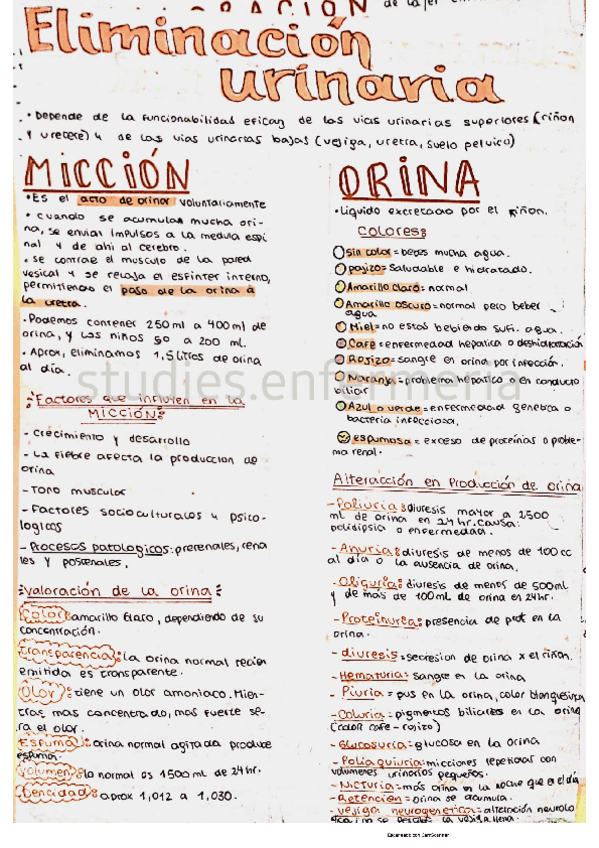 Eliminación
urinaria
• Depende de la funcionabilidad eficaz de las vias urinarias superiores (riñon
y uretere) y de las vias urinarias bajas (vejiga, uretra, suelo pelvico)
MICCIÓN
• Es el acto de orinar voluntariamente
• cuando se acumulas mucha ori-
na, se envian impulsos a la medula espi
nal y de ahi al cerebro.
• se contrae el musculo de la pared
vesical y se relaja el esfinter interno,
permitiendo el paso de la orina a
la uretra.
• Podemos contener 250 ml a 400 ml de
orina, y los niños 50 a 200 ml.
• Aprox, eliminamos 1,5 litros de orina
al día.
Factores que influyen en la
MICCIÓN:
- Crecimiento y desarrollo
- La fiebre afecta la produccion de
orina
- Tono muscular
- Factores socioculturales y psico-
logicos
- Procesos patologicos: prerenales, rena
les y posrenales.
Valoración de la orina:
Color: amarillo claro, dependiendo de su
concentración.
Transparencia: la orina normal recien
emitida es transparente.
Olor: tiene un olor amoniaco. Mien-
tras mas concentrado, mas fuerte se-
ra el olor.
Espuma: orina normal agitada produce
espuma.
Volumen: lo normal es 1500 ml de 24 hr.
Dencidad: aprox 1,012 a 1,030.
ORINA
• Liquido excretado por el riñon.
COLORES:
sin color = bebes mucha agua.
pajizo = Saludable e hidratado.
Amarillo claro = normal
Amarillo oscuro = normal pero beber
agua
Miel = no estas bebiendo sufi. agua.
Café = enfermedad hepatica o deshidratación
Rosizo = sangre en orina por infección.
Naranja = problema hepatico o en conducto
biliar
Azul o verde = enfermedad genetica o
bacteria infecciosa.
espumosa = exceso de proteínas o proble-
ma renal.
Alteracción en Producción de orina
- Poliuria: diuresis mayor a 2500
ml de orina en 24 hr. causa:
polidipsia o enfermedad.
- Anuria: diuresis de menos de 100 cc
al día o la ausencia de orina.
- Oliguria: diuresis de menos de 500ml
y de más de 100ml de orina en 24hr.
- Proteinurea: presencia de prot en la
orina.
- diuresis = secresion de orina x el riñon.
- Hematuria: sangre en la orina
- Piuria = pus en la orina, color blanquesina
- Coluria: pigmentos biliares en la orina
(color cafe - rojizo)
- Glucosuria: glucosa en la orina
- Poliaquiuria: micciones repetidas con
volumenes urinarios pequeños.
- Nicturia: más orina en la noche que en el día
- Retención = orina se acumula.
- vejiga neurogenetica = alteración neurolo
la vejiga llena.
studies.enfermeria
Escaneado con CamScanner